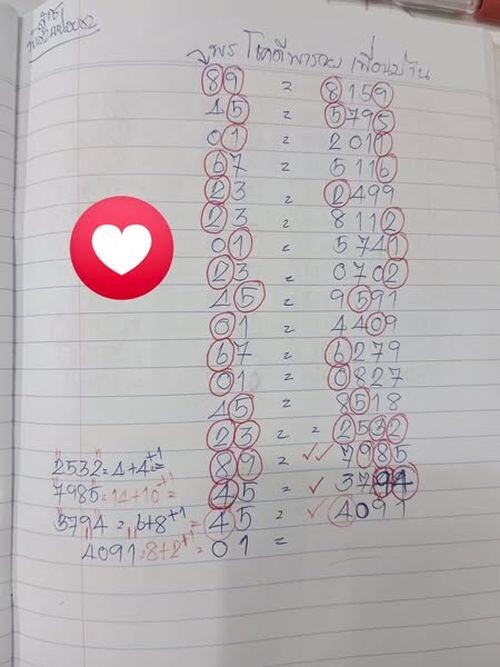 ลูพร โชคดีพารวย เพื่อนบ้าน
89 = 8159
45 = 5795
01 = 2011
67 = 5116
23 = 2499
23 = 8112
01 = 5741
23 = 0702
45 = 9591
01 = 4409
67 = 6279
01 = 0827
45 = 8518
23 = = 2532
2532=4+4+1=
89 = ✓✓ 7985
7985=14+10+1=
45 = ✓ 3794
3794=6+8+1=
45 = ✓ 4091
4091=8+2+1=
01 =